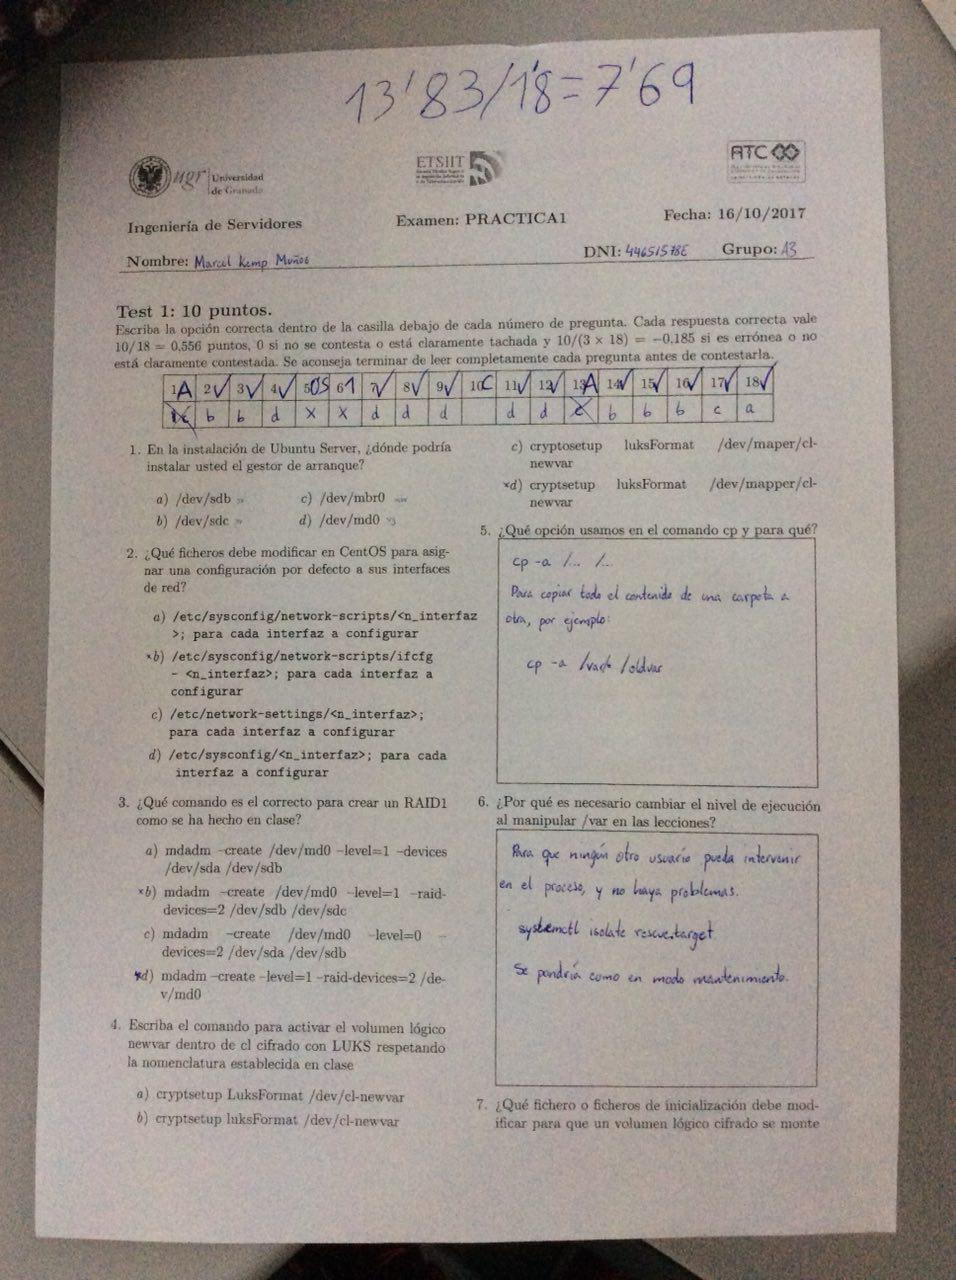 13'83/1'8=7'69
ugr Universidad de Granada
ETSIIT
ATC
Ingeniería de Servidores
Examen: PRACTICA1
Fecha: 16/10/2017
Nombre: Marcel Kemp Muñoz
DNI: 44651578E
Grupo: A3
Test 1: 10 puntos.
Escriba la opción correcta dentro de la casilla debajo de cada número de pregunta. Cada respuesta correcta vale
10/18 = 0,556 puntos, 0 si no se contesta o está claramente tachada y 10/(3 × 18) = −0,185 si es errónea o no
está claramente contestada. Se aconseja terminar de leer completamente cada pregunta antes de contestarla.
1 A 2 ✓ 3 ✓ 4 ✓ 5 0'5 6 1 7 ✓ 8 ✓ 9 ✓ 10 C 11 ✓ 12 ✓ 13 A 14 ✓ 15 ✓ 16 ✓ 17 ✓ 18 ✓
b b d x x d d d d d b b b c a
1. En la instalación de Ubuntu Server, ¿dónde podría
instalar usted el gestor de arranque?
a) /dev/sdb c) /dev/mbr0
b) /dev/sdc d) /dev/md0
2. ¿Qué ficheros debe modificar en CentOS para asig-
nar una configuración por defecto a sus interfaces
de red?
a) /etc/sysconfig/network-scripts/<n_interfaz
>; para cada interfaz a configurar
*b) /etc/sysconfig/network-scripts/ifcfg
- <n_interfaz>; para cada interfaz a
configurar
c) /etc/network-settings/<n_interfaz>;
para cada interfaz a configurar
d) /etc/sysconfig/<n_interfaz>; para cada
interfaz a configurar
3. ¿Qué comando es el correcto para crear un RAID1
como se ha hecho en clase?
a) mdadm –create /dev/md0 –level=1 –devices
/dev/sda /dev/sdb
*b) mdadm –create /dev/md0 –level=1 –raid-
devices=2 /dev/sdb /dev/sdc
c) mdadm –create /dev/md0 –level=0 –
devices=2 /dev/sda /dev/sdb
*d) mdadm –create –level=1 –raid-devices=2 /de-
v/md0
4. Escriba el comando para activar el volumen lógico
newvar dentro de cl cifrado con LUKS respetando
la nomenclatura establecida en clase
a) cryptsetup LuksFormat /dev/cl-newvar
b) cryptsetup luksFormat /dev/cl-newvar
c) cryptosetup luksFormat /dev/maper/cl-
newvar
*d) cryptsetup luksFormat /dev/mapper/cl-
newvar
5. ¿Qué opción usamos en el comando cp y para qué?
cp -a /... /...
Para copiar todo el contenido de una carpeta a
otra, por ejemplo:
cp -a /var/. /oldvar
6. ¿Por qué es necesario cambiar el nivel de ejecución
al manipular /var en las lecciones?
Para que ningún otro usuario pueda intervenir
en el proceso, y no haya problemas.
systemctl isolate rescue.target
Se pondría como en modo mantenimiento.
7. ¿Qué fichero o ficheros de inicialización debe mod-
ificar para que un volumen lógico cifrado se monte